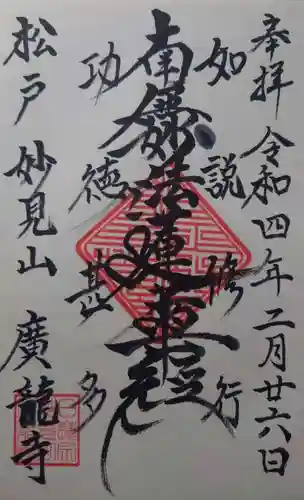 奉拝 令和四年二月廿六日
如説修行
南無妙法蓮華経
功徳甚多
松戸 妙見山 廣龍寺